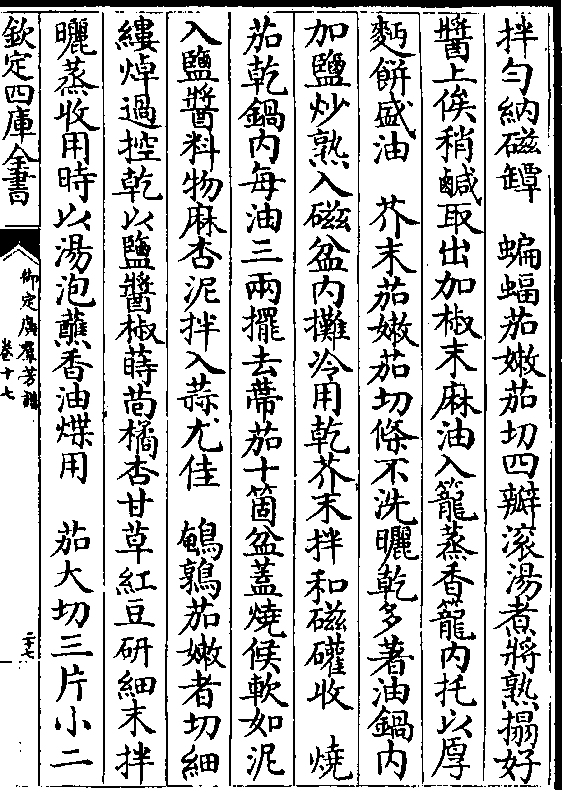 拌勻納磁罈　蝙蝠茄嫩茄切四瓣滾湯煮將熟搨好
醬上俟稍鹹取出加椒末麻油入籠蒸香籠内托以厚
麪餅盛油　芥末茄嫩茄切條不洗曬乾多著油鍋内
加鹽炒熟入磁盆内攤冷用乾芥末拌和磁礶收　燒
茄乾鍋内每油三兩擺去蔕茄十箇盆蓋燒候軟如泥
入鹽醬料物麻杏泥拌入蒜尤佳　鵪鶉茄嫩者切細
縷焯過控乾以鹽醬椒蒔茴橘杏甘草紅豆研細末拌
曬蒸收用時以湯泡蘸香油煠用　茄大切三片小二
欽定四庫全書
御定廣羣芳譜
卷十七
二十七